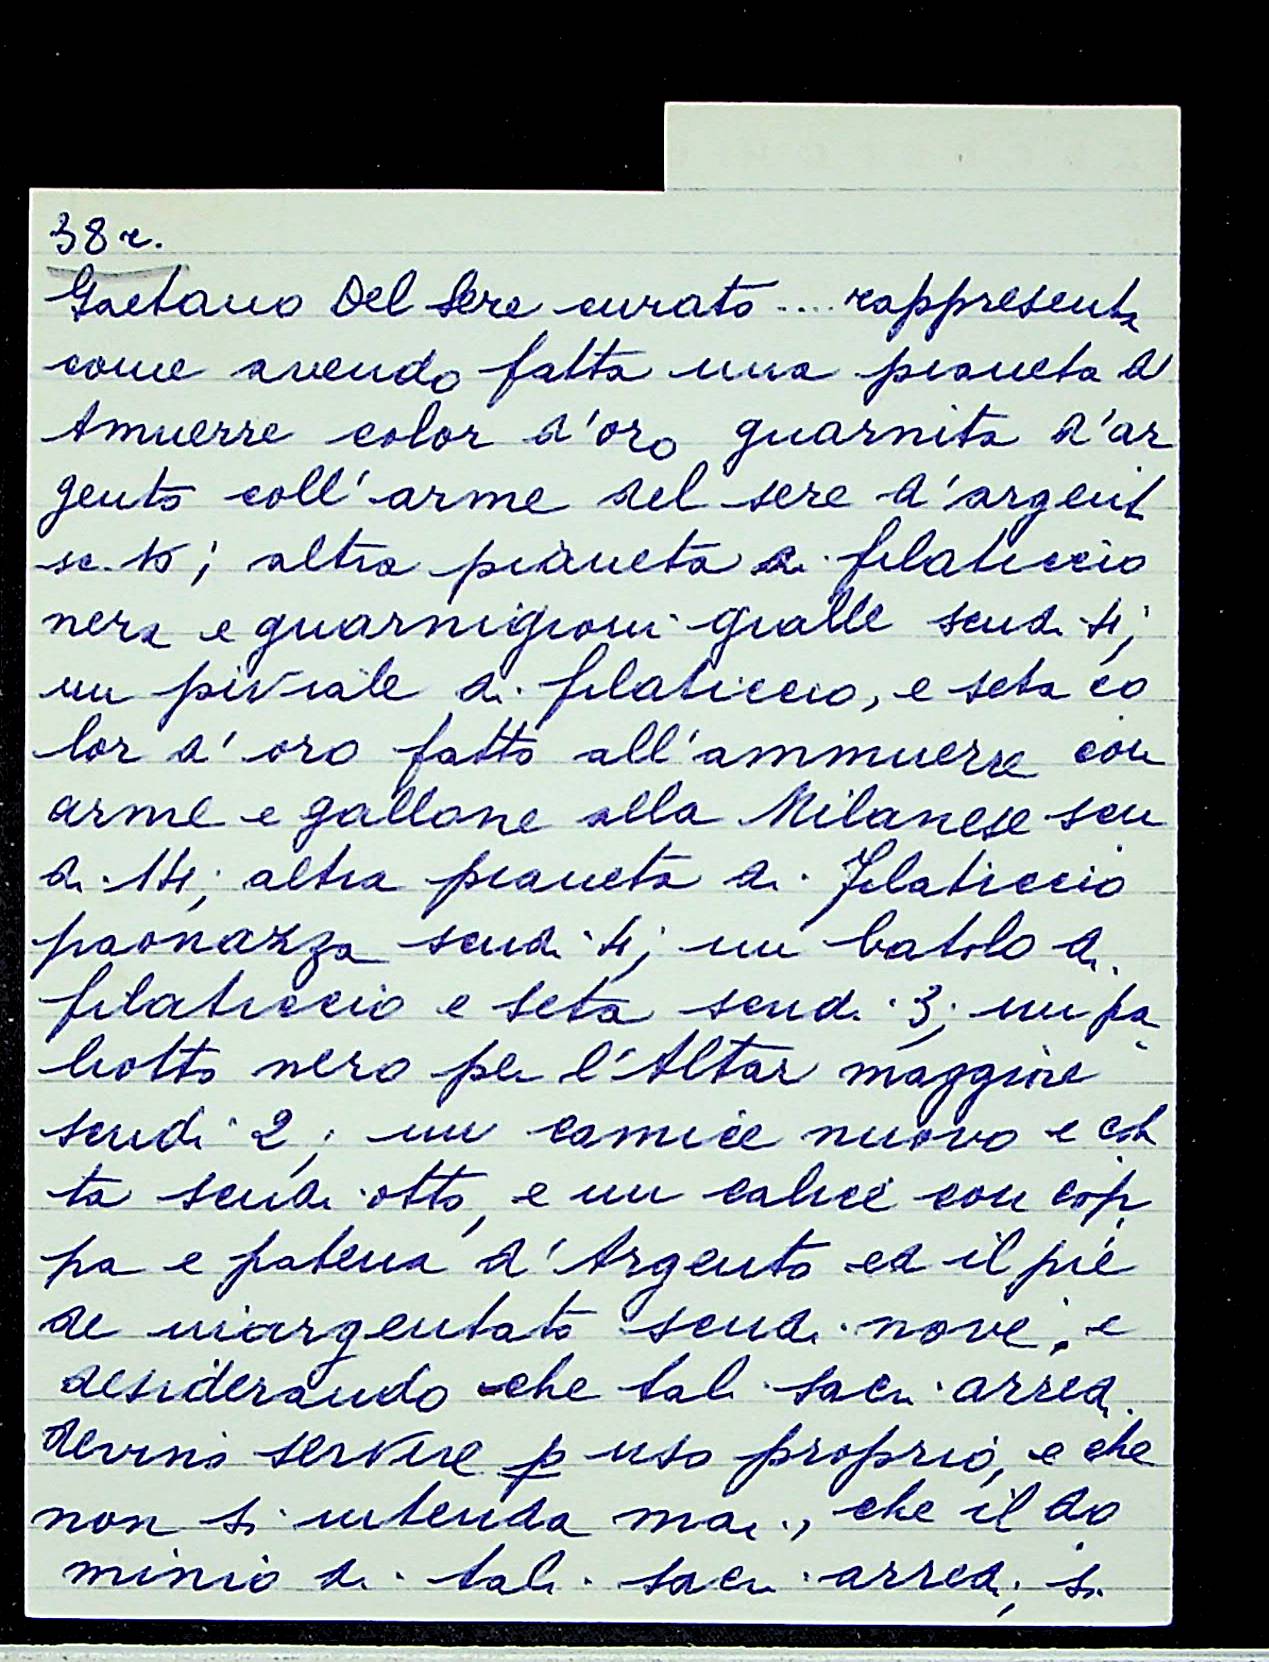 38 r.
Gaetano Del Sere curato .... rappresenta
come avendo fatta una pianeta d'
Amuerre color d'oro guarnita d'ar
gento coll'arme del sere d'argent
sc. 15; altra pianeta di filaticcio
nera e guarnigioni gialle scudi 4;
un piviale di filaticcio, e seta co
lor d'oro fatto all'ammuerre con
arme e gallone alla Milanese scu
di 14; altra pianeta di Filaticcio
paonazza scudi 4; un batolo di
filaticcio e seta scudi 3; un pa
liotto nero per l'Altar maggiore
scudi 2; un camice nuovo e cot
ta scudi otto, e un calice con cop
pa e patena d'Argento ed il pie
de inargentato scudi nove; e
desiderando che tali sacri arredi
devino servire p uso proprio, e che
non si intenda mai, che il do
minio di tali sacri arredi, si